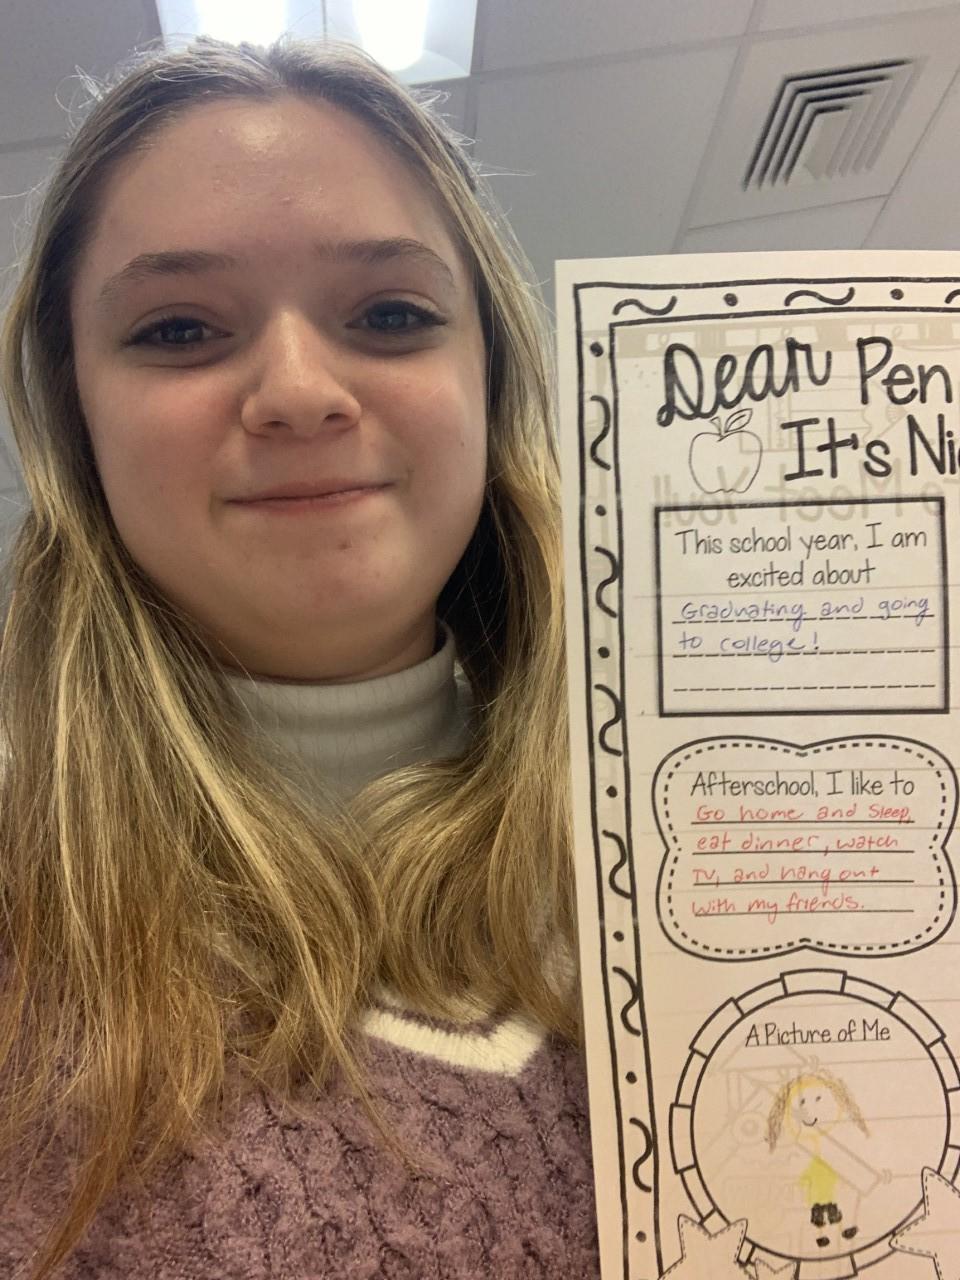 Dear Pen
It's Ni
This school year, I am
excited about
Graduating and going
to college!
Afterschool, I like to
Go home and Sleep,
eat dinner, watch
TV, and hang out
with my friends.
A Picture of Me